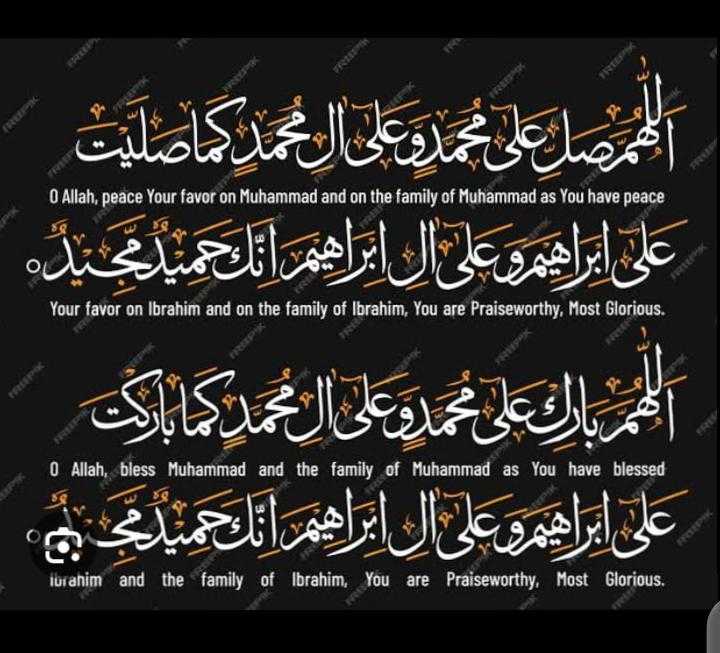 اَللّٰهُمَّ صَلِّ عَلٰى مُحَمَّدٍ وَّعَلٰى اٰلِ مُحَمَّدٍ كَمَا صَلَّيْتَ
O Allah, peace Your favor on Muhammad and on the family of Muhammad as You have peace
عَلٰى اِبْرَاهِيْمَ وَعَلٰى اٰلِ اِبْرَاهِيْمَ اِنَّكَ حَمِيْدٌ مَّجِيْدٌ
Your favor on Ibrahim and on the family of Ibrahim, You are Praiseworthy, Most Glorious.
اَللّٰهُمَّ بَارِكْ عَلٰى مُحَمَّدٍ وَّعَلٰى اٰلِ مُحَمَّدٍ كَمَا بَارَكْتَ
O Allah, bless Muhammad and the family of Muhammad as You have blessed
عَلٰى اِبْرَاهِيْمَ وَعَلٰى اٰلِ اِبْرَاهِيْمَ اِنَّكَ حَمِيْدٌ مَّجِيْدٌ
Ibrahim and the family of Ibrahim, You are Praiseworthy, Most Glorious.